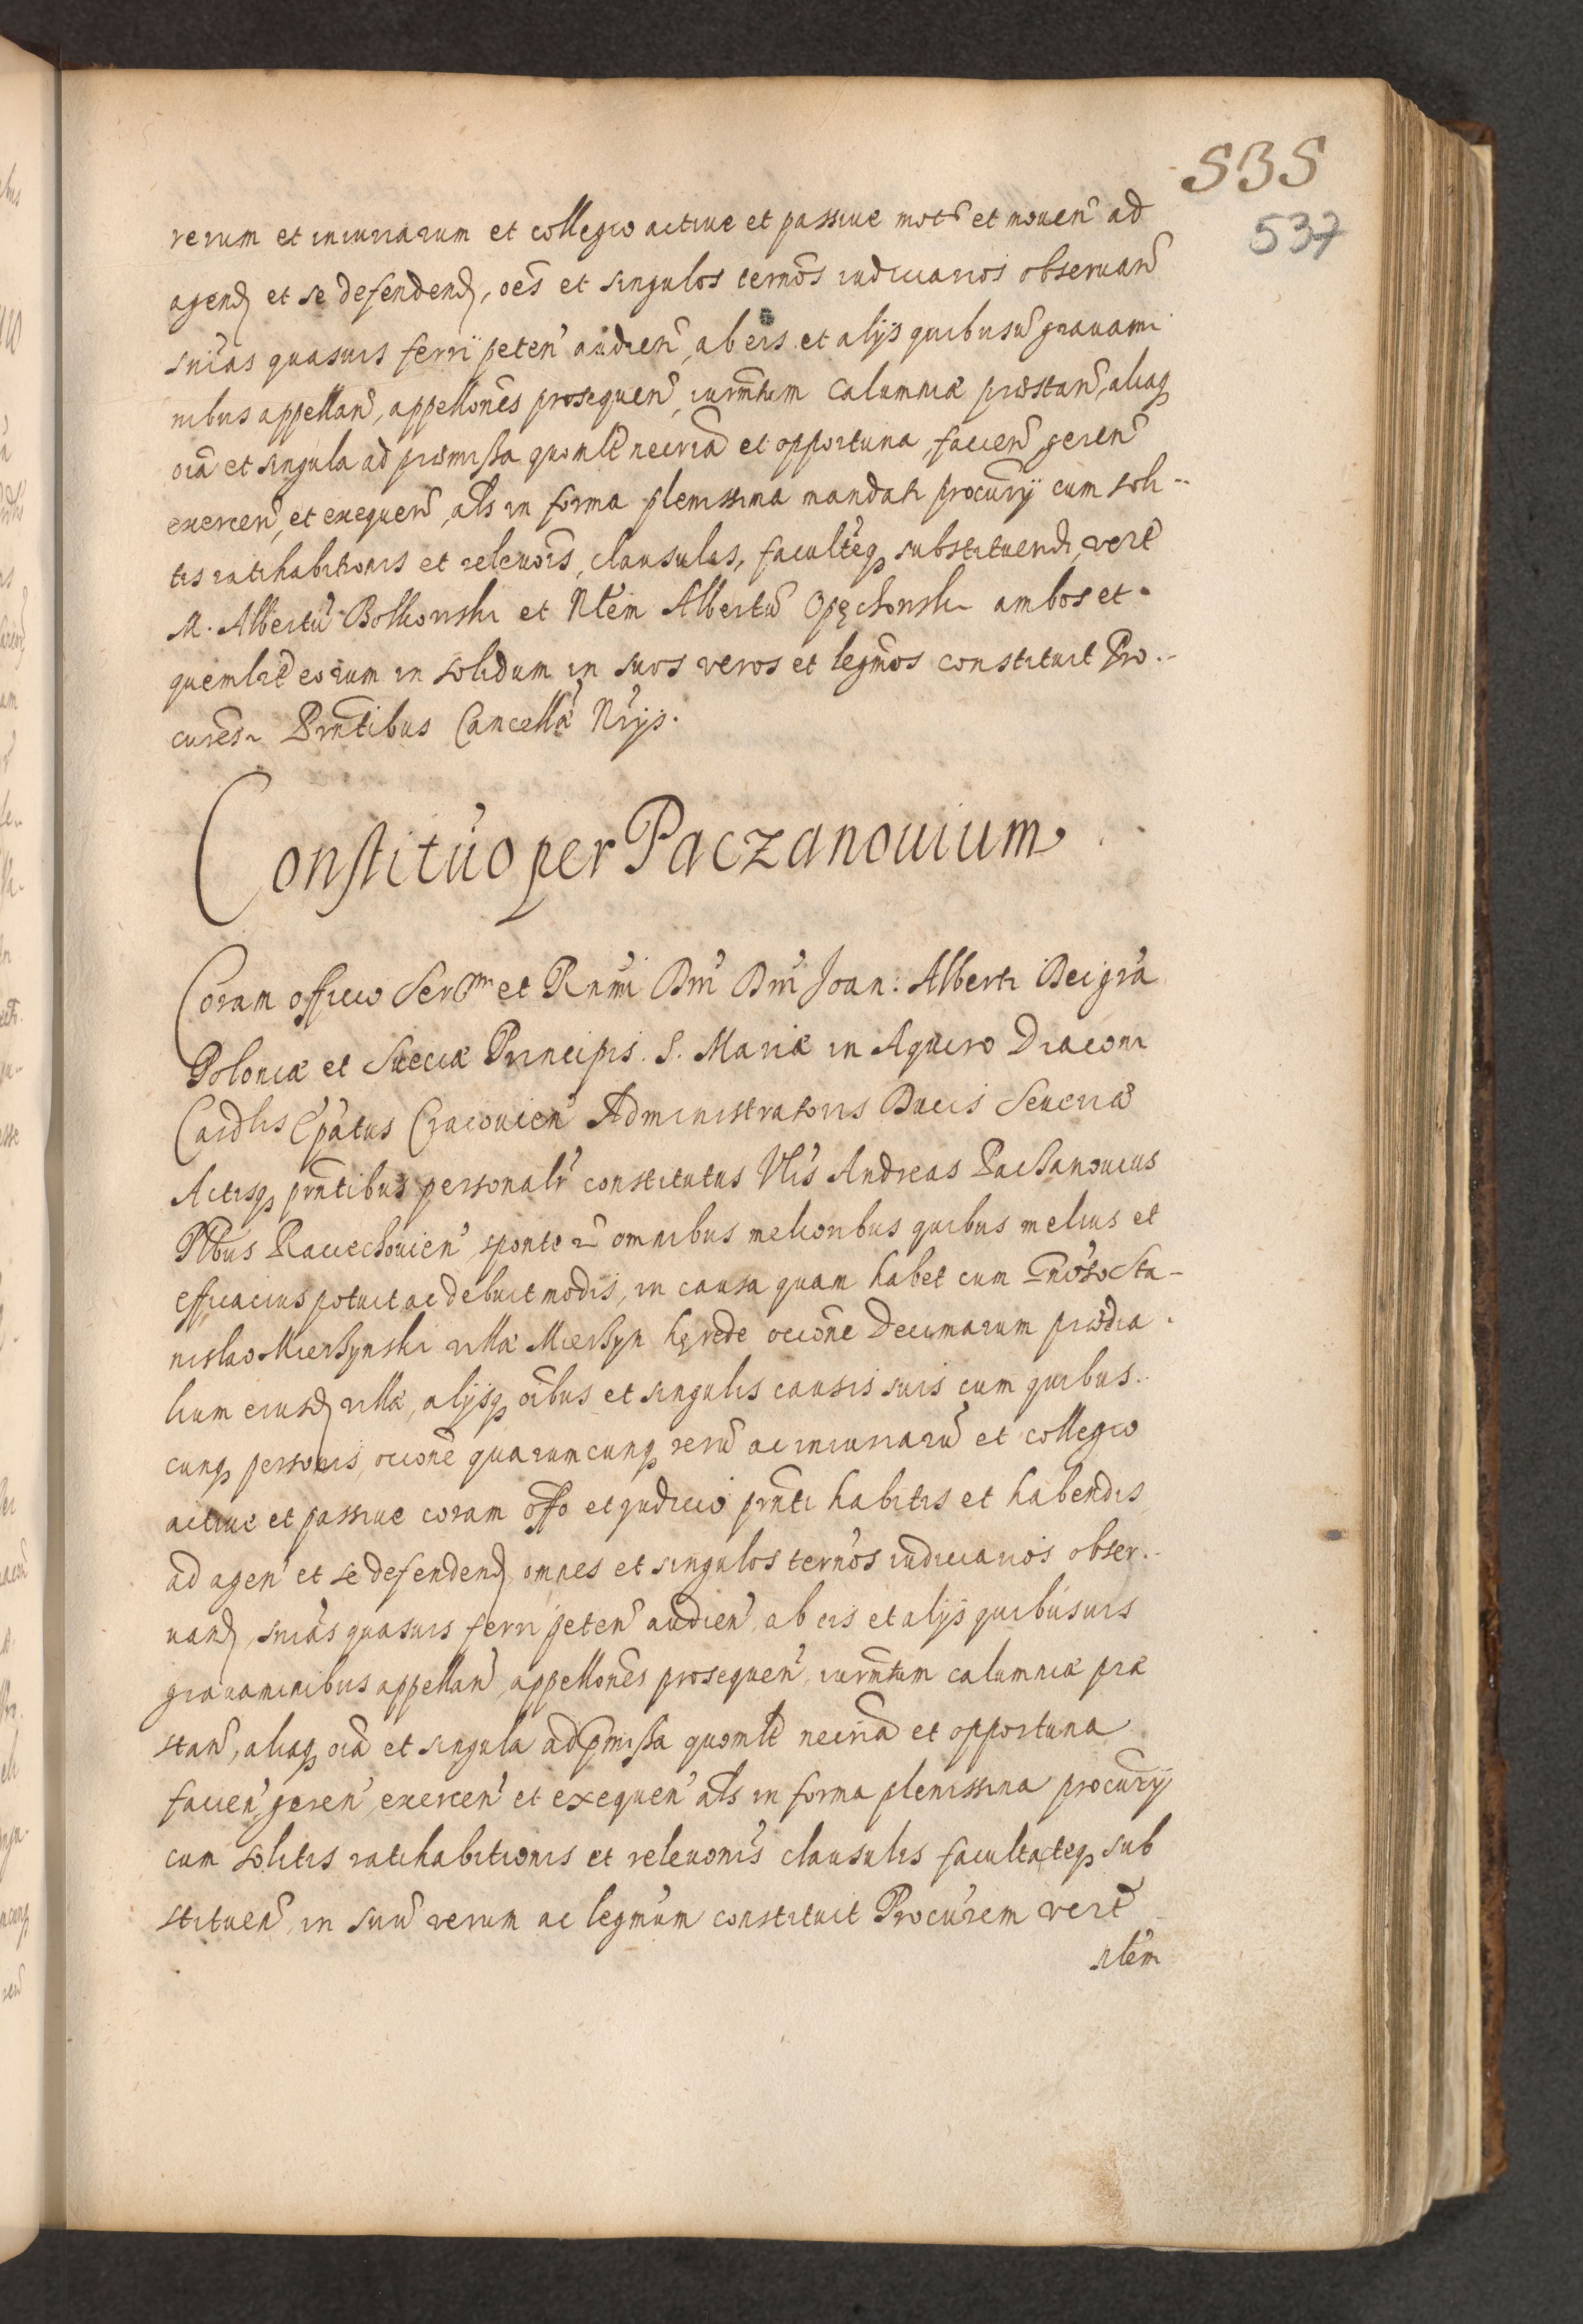 535
537
rerum et iniuriarum et collegio actiue et passiue mot' et mouen' ad
agend' et se defendend', oēs et singulos termos iudiciarios obseruan'
snias quasuis ferri peten' audien', ab eis et alijs quibusuis grauami
nibus appellan', appellones prosequen', iurmtum calumniæ præstan', aliaq
oia et singula ad præmissa quomlt necria et opportuna facien' geren'
exercen', et exequen', als in forma plenissima mandati procurij cum soli-
tis ratihabitionis et releuois, clausulis, facultēq substituendi, verlt
M. Albertū Bolkonski et Nlem Albertū Opęchonski ambos et
quemlit eorum in solidum in suos veros et legmos constituit Pro-
cures. Prntibus Cancellæ Nrijs.
Constituo per Paczanouium
Coram officio Sermi et Rnmi Dni Dni Joan: Alberti Dei gra
Poloniæ et Sueciæ Principis. S. Mariæ in Aquiro Diaconi
Cardlis Epatus Cracouien' Administratoris Ducis Seueriæ
Actisq prntibus personalr constitutus Vlis Andreas Pacßanouius
Plbus Raciechouien' sponte omnibus melioribus quibus melius et
efficacius potuit ac debuit modis, in causa quam habet cum Gnoso Sta-
nislao Mierßynski villæ Mierßyn hęrede ocione Decimarum prædia
lium eiusd' villæ, alijsq oibus et singulis causis suis cum quibus-
cunq personis, ocione quarumcunq rerū ac iniuriarū et collegio
actiue et passiue coram offo et judicio prnti habitis et habendis
ad agen' et se defendend', omnes et singulos termos iudiciarios obser-
uand', snias quasuis ferri peten' audien', ab eis et alijs quibusuis
grauaminibus appellan', appellones prosequen', iurmtum calumniæ præ
stan', aliaq oia et singula ad pmissa quomlt necria et opportuna
facien', geren', exercen' et exequen' als in forma plenissima procurij
cum solitis ratihabitionis et releuonis clausulis facultateq sub
stituen', in suū verum ac legmum constituit Procurem verlt
Nlem